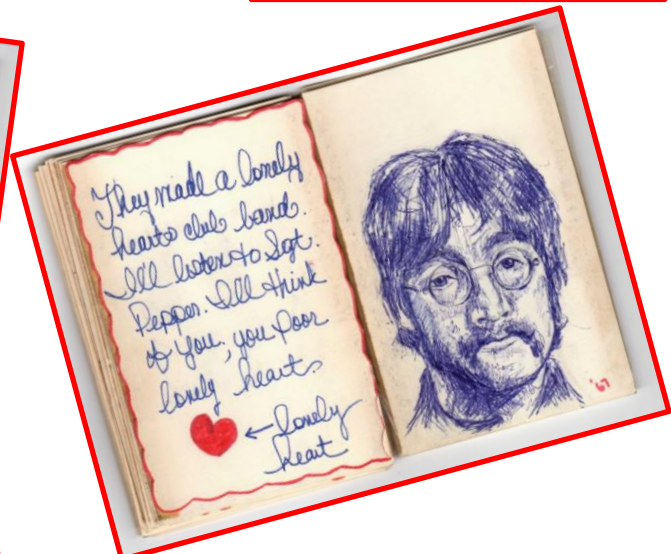 They made a lonely
hearts club band.
I'll listen to Sgt.
Pepper. I'll think
of you, you poor
lonely heart.
← lonely
heart
'67